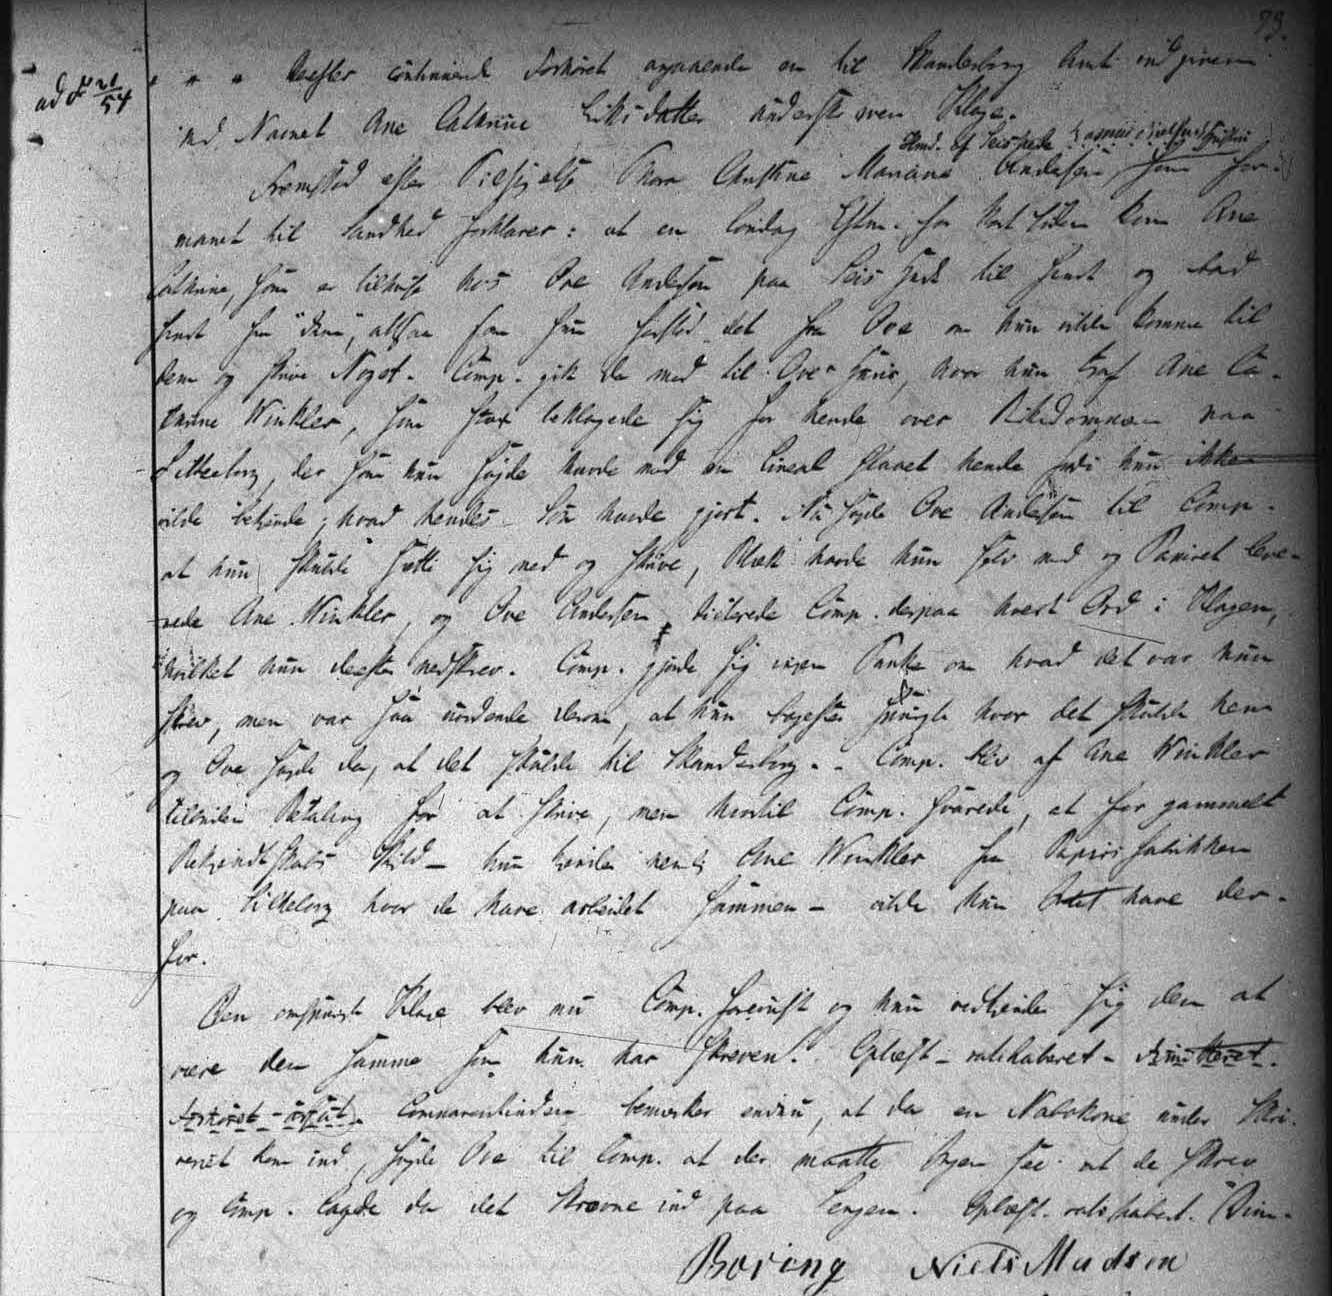 73.
ad No 21/54
" " " Derefter continuerede Forhøret angaaende en til Skanderborg Amt indgiven
med Navnet Ane Cathrine Eriksdatter underskreven Klage.
Gmd. af Seishede Rasmus
Fremstod efter Tilsigelse Kone Christine Mariane Andersen som for-
manet til Sandhed forklarer: at en Søndag Eftm. for kort Siden kom Ane
Cathrine, som er tilhuse hos Ove Andersen paa Seis Hede til hende og bad
hende fra "dem", altsaa som hun forstod det fra Ove om hun vilde komme til
dem og skrive Noget. Comp. gik da med til Oves Huus, hvor hun traf Ane Ca-
thrine Winkler, som strax beklagede sig for hende over Birkedommeren paa
Silkeborg, der som hun sagde havde med en Lineal slaaet hende fordi hun ikke
vilde bekjende, hvad hendes Søn havde gjort. Nu sagde Ove Andersen til Comp.
at hun skulde sætte sig ned og skrive, Blæk havde hun selv med og Papiret leve-
rede Ane Winkler, og Ove Andersen dicterede Comp. derpaa hvert Ord i Klagen,
hvilket hun derefter nedskrev. Comp. gjorde sig ingen Tanke om hvad det var hun
skrev, men var saa uvidende derom, at hun bagefter spurgte hvor det skulde hen
og Ove sagde da, at det skulde til Skanderborg. - Comp. blev af Ane Winkler
tilbuden Betaling for at skrive, men hvortil Comp. svarede, at for gammelt
Bekjendtskabs Skyld - hun kjender nemlig Ane Winkler fra Papirsfabrikken
paa Silkeborg hvor de have arbeidet sammen - vilde hun Intet have der-
for.
Den omspurgte Klage blev nu Comp. foreviist og hun vedkjender sig den at
være den samme som hun har skreven. Oplæst - ratihaberet - dimitteret.
Forhøret - udsat. Comparentinden bemærker endnu, at da en Nabokone under Skri-
veriet kom ind, sagde Ove til Comp. at der maatte Ingen see at de skrev
og Comp. lagde da det Skrevne ind paa Sengen. Oplæst. ratihaberet. Dim-
Boving Niels Madsen